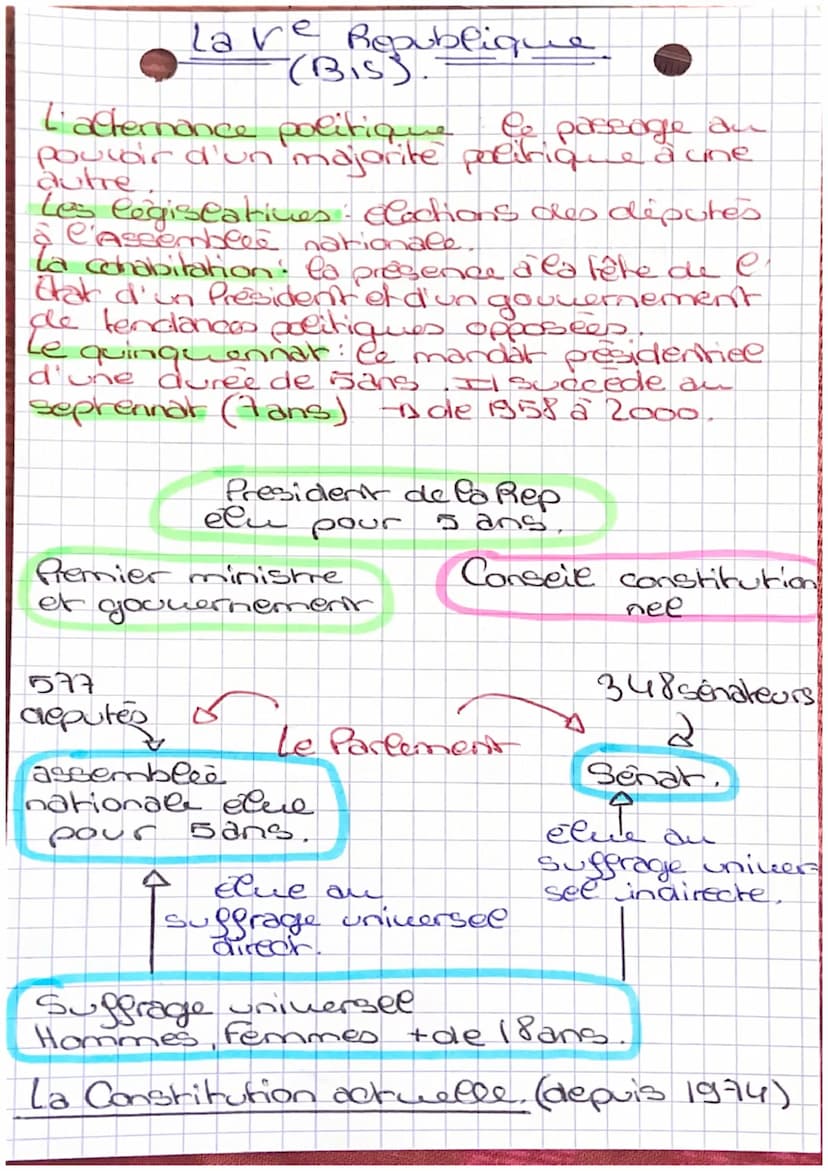 La Ve République
(Bis).
L'alternance politique le passage du
pouvoir d'un majorité politique à une
autre.
Les législatives : élections des députés
à l'Assemblée nationale.
La cohabitation : la présence à la tête de l'
État d'un Président et d'un gouvernement
de tendances politiques opposées.
Le quinquennat : le mandat présidentiel
d'une durée de 5ans. Il succède au
septennat (7ans) → de 1958 à 2000.
President de la Rep
élu pour 5 ans.
Premier ministre
et gouvernement
Conseil constitution
nel
577
députés
348 sénateurs
Le Parlement
assemblée
nationale élue
pour 5ans.
Sénat.
élue au
suffrage univer
sel indirecte.
élue au
suffrage universel
direct.
Suffrage universel
Hommes, Femmes + de 18ans.
La Constitution actuelle. (depuis 1974)